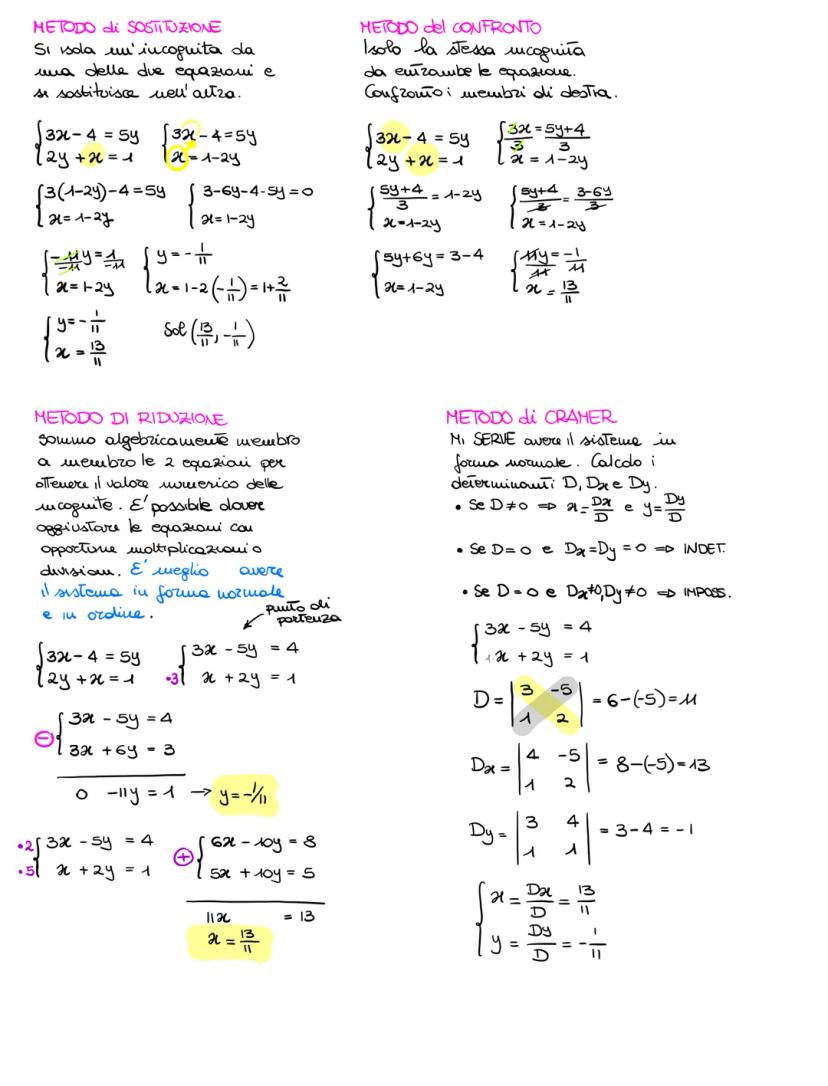 METODO di SOSTITUZIONE
Si isola un'incognita da
una delle due equazioni e
si sostituisce nell'altra.
{3x - 4 = 5y
{2y + x = 1
{3x - 4 = 5y
{x = 1 - 2y
{3(1-2y) - 4 = 5y
{x = 1 - 2y
{3 - 6y - 4 - 5y = 0
{x = 1 - 2y
{-11y/-11 = 1/-11
{x = 1 - 2y
{y = -1/11
{x = 1 - 2(-1/11) = 1 + 2/11
{y = -1/11
{x = 13/11
Sol (13/11, -1/11)
METODO del CONFRONTO
Isolo la stessa incognita
da entrambe le equazione.
Confronto i membri di destra.
{3x - 4 = 5y
{2y + x = 1
{3x/3 = 5y+4/3
{x = 1 - 2y
{5y+4/3 = 1 - 2y
{x = 1 - 2y
{5y+4/3 = 3-6y/3
{x = 1 - 2y
{5y + 6y = 3 - 4
{x = 1 - 2y
{11y/11 = -1/11
{x = 13/11
METODO DI RIDUZIONE
Sommo algebricamente membro
a membro le 2 equazioni per
ottenere il valore numerico delle
incognite. E' possibile dover
aggiustare le equazioni con
opportune moltiplicazioni o
divisioni. E' meglio avere
il sistema in forma normale
e in ordine.
punto di
partenza
{3x - 4 = 5y
{2y + x = 1
{3x - 5y = 4
•3{x + 2y = 1
⊖{3x - 5y = 4
{3x + 6y = 3
0 -11y = 1 → y = -1/11
•2{3x - 5y = 4
•5{x + 2y = 1
⊕{6x - 10y = 8
{5x + 10y = 5
11x = 13
x = 13/11
METODO di CRAMER
MI SERVE avere il sistema in
forma normale. Calcolo i
determinanti D, Dx e Dy.
• Se D≠0 ⇒ x = Dx/D e y = Dy/D
• Se D=0 e Dx=Dy=0 ⇒ INDET.
• Se D=0 e Dx≠0, Dy≠0 ⇒ IMPOSS.
{3x - 5y = 4
{1x + 2y = 1
D = |3 -5|
|1 2| = 6-(-5) = 11
Dx = |4 -5|
|1 2| = 8-(-5) = 13
Dy = |3 4|
|1 1| = 3-4 = -1
{x = Dx/D = 13/11
{y = Dy/D = -1/11